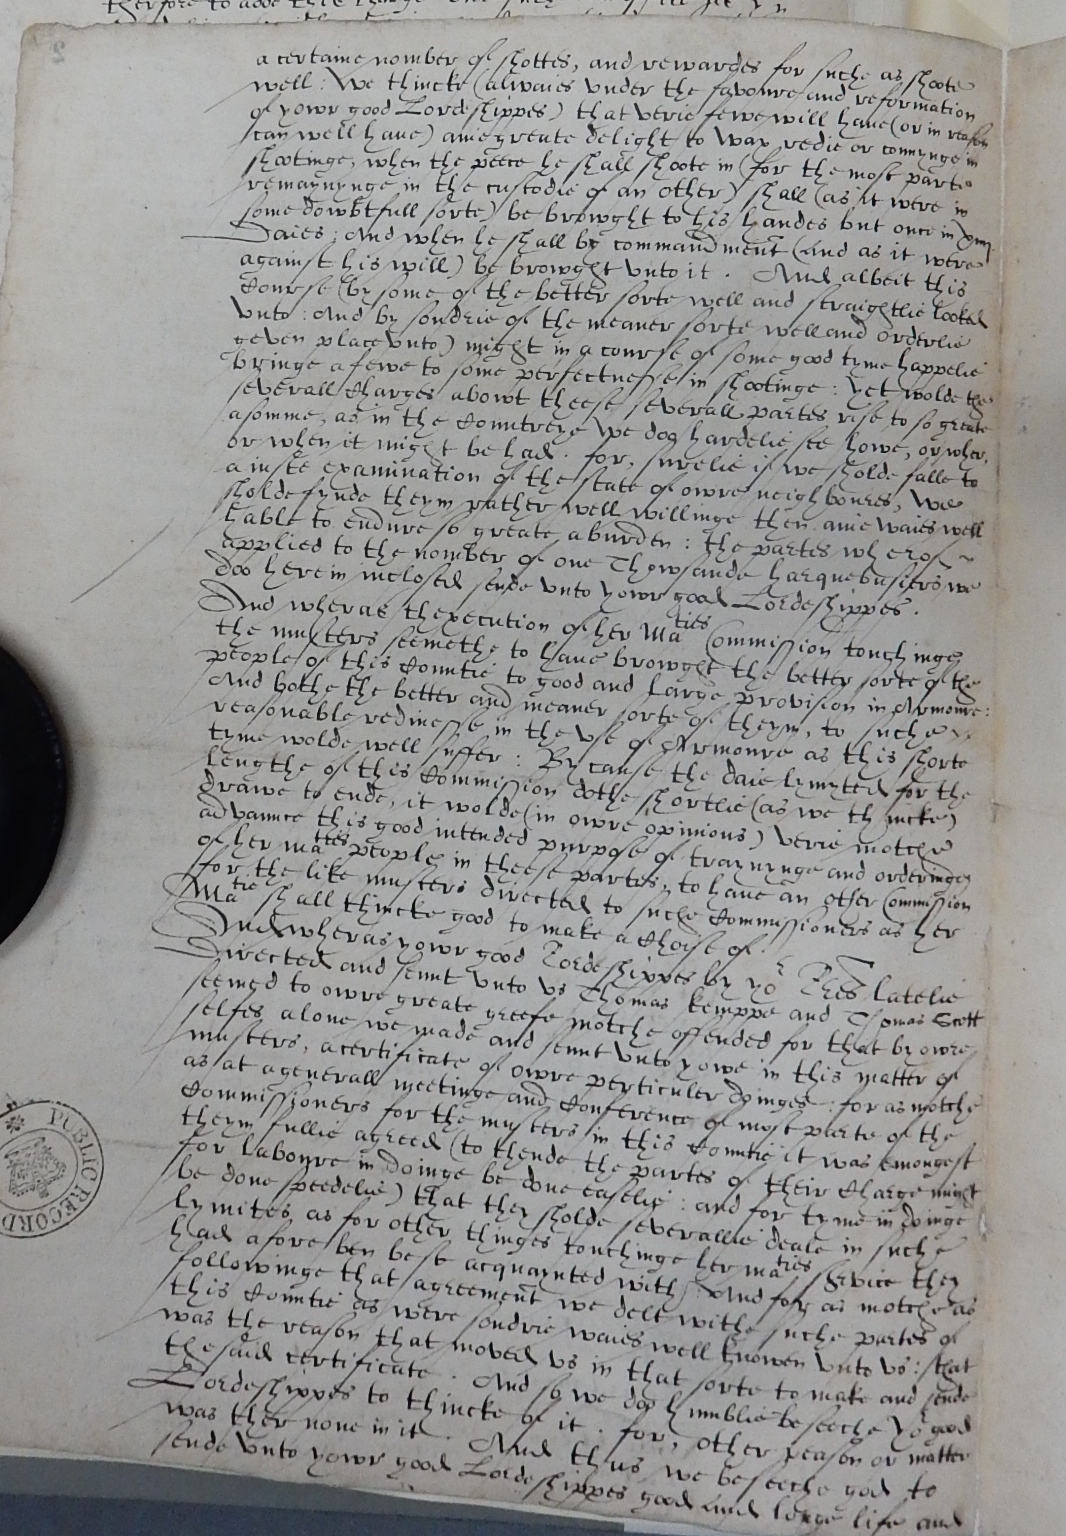 therfore to adde this charge
a certaine nomber of shottes, and rewardes for suche as shoote
well: We thincke (alwaies under the favoure and reformation
of yowr good Lordeshippes) that verie fewe will have (or in reason
can well have) anie greate delight to wax redie or connynge in
shootinge, when the peece he shall shoote in (for the most parte
remaynynge in the custodie of an other) shall (as it were in
some dowbtfull sorte) be browght to his handes but once in xiiij
Daies: And when he shall by commaundment (and as it were
against his will) be browght unto it. And albeit this
Course (by some of the better sorte well and straightlie looked
unto: And by sondrie of the meaner sorte well and orderlie
geven place unto) might in a course of some good tyme happelie
bringe a fewe to some perfectnesse in shootinge: Yet wolde the
severall Charges abowt theese severall partes rise to so greate
a somme, as in the Countreye we doo hardelie see howe, or wher,
or when it might be had. for, surelie if we sholde falle to
a iuste examination of the state of owre neighboures, we
sholde fynde theym rather well willinge then anie waies well
hable to endure so greate a burden: the partes wherof
applied to the nomber of one Thowsande harquebusiers we
doo herein inclosed sende unto yowr good Lordeshippes.
And wheras thexecution of her Ma ties Commission touchinge
the musters seemethe to have browght the better sorte of the
people of this Countie to good and large provision in Armoure:
And bothe the better and meaner sorte of theym, to suche
reasonable redinesse in the use of Armoure as this shorte
tyme wolde well suffer: By cause the daie lymyted for the
lengthe of this Commission dothe shortlie (as we thincke)
drawe to ende, it wolde (in owre opinions) verie motche
advaunce this good intended purpose of traynynge and orderinge
of her ma ties people in theese partes, to have an other Commission
for the like musters directed to suche Commissioners as her
Ma tie shall thincke good to make a Choise of.
And wheras yowr good Lordeshippes by yo r lres latelie
Directed and sennt unto us Thomas kemppe and Thomas Scott
seemed to owre greate greefe motche offended for that by owre
selfes alone we made and sennt unto yowe in this matter of
musters, a certificate of owre perticuler doinges: for as motche
as at a generall meetinge and Conference of most parte of the
Commissioners for the musters in this Countie it was emongest
theym fullie agreed (to thende the partes of their Charge might
for laboure in doinge be done easelie: and for tyme in doinge
be done speedelie) that they sholde severallie deale in suche
lymites as for other thinges touchinge her ma ties service they
had afore ben best acquaynted with: And for as motche as
followinge that agreement we delt withe suche partes of
this Countie as were sondrie waies well knowen unto us: that
was the reason that moved us in that sorte to make and sende
the said certificate. And so we doo humblie beseeche yo r good
Lordeshippes to thincke of it. for, other reason or matter
was ther none in it. And thus we beseeche god to
sende unto yowr good Lordeshippes good and longe life and
PUBLIC RECORD